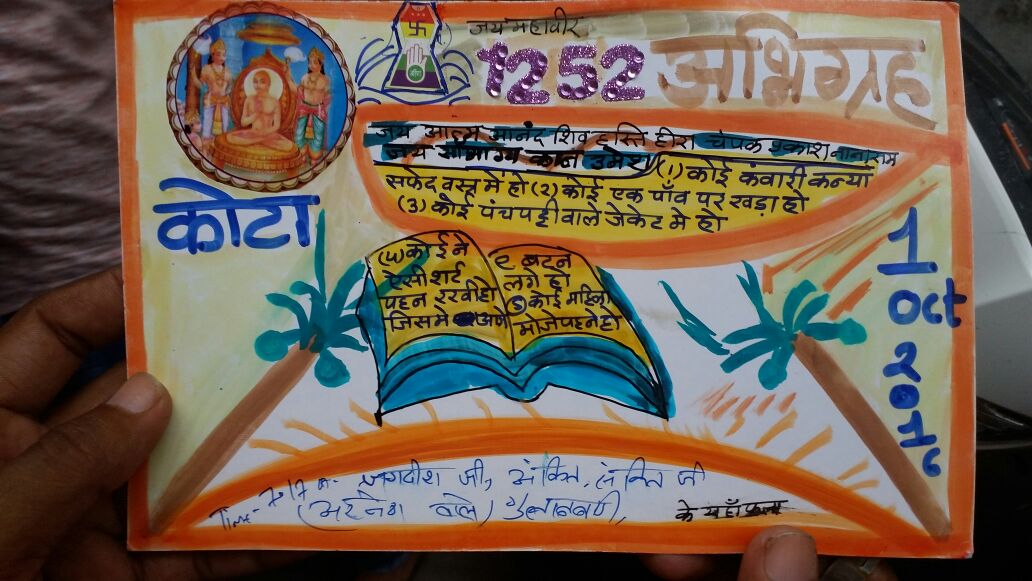 जय महावीर
1252 अभिग्रह
जय आत्म आनंद शिव हस्ति हीरा चंपक प्रकाश नानाराम
जय सौभाग्य कान उमेश (1) कोई कंवारी कन्या
सफेद वस्त्र में हो (२) कोई एक पाँव पर खड़ा हो
(3) कोई पंचपट्टी वाले जेकेट मे हो
कोटा
(4) कोई ने
ऐसी शर्ट
पहन रखी हो
जिसमे
९ बटन
लगे हो
(5) कोई महिला
मोजे पहने हो
1
Oct
201
Time-
जगदीश जी, अंकित,
वाले)
के यहाँ फला